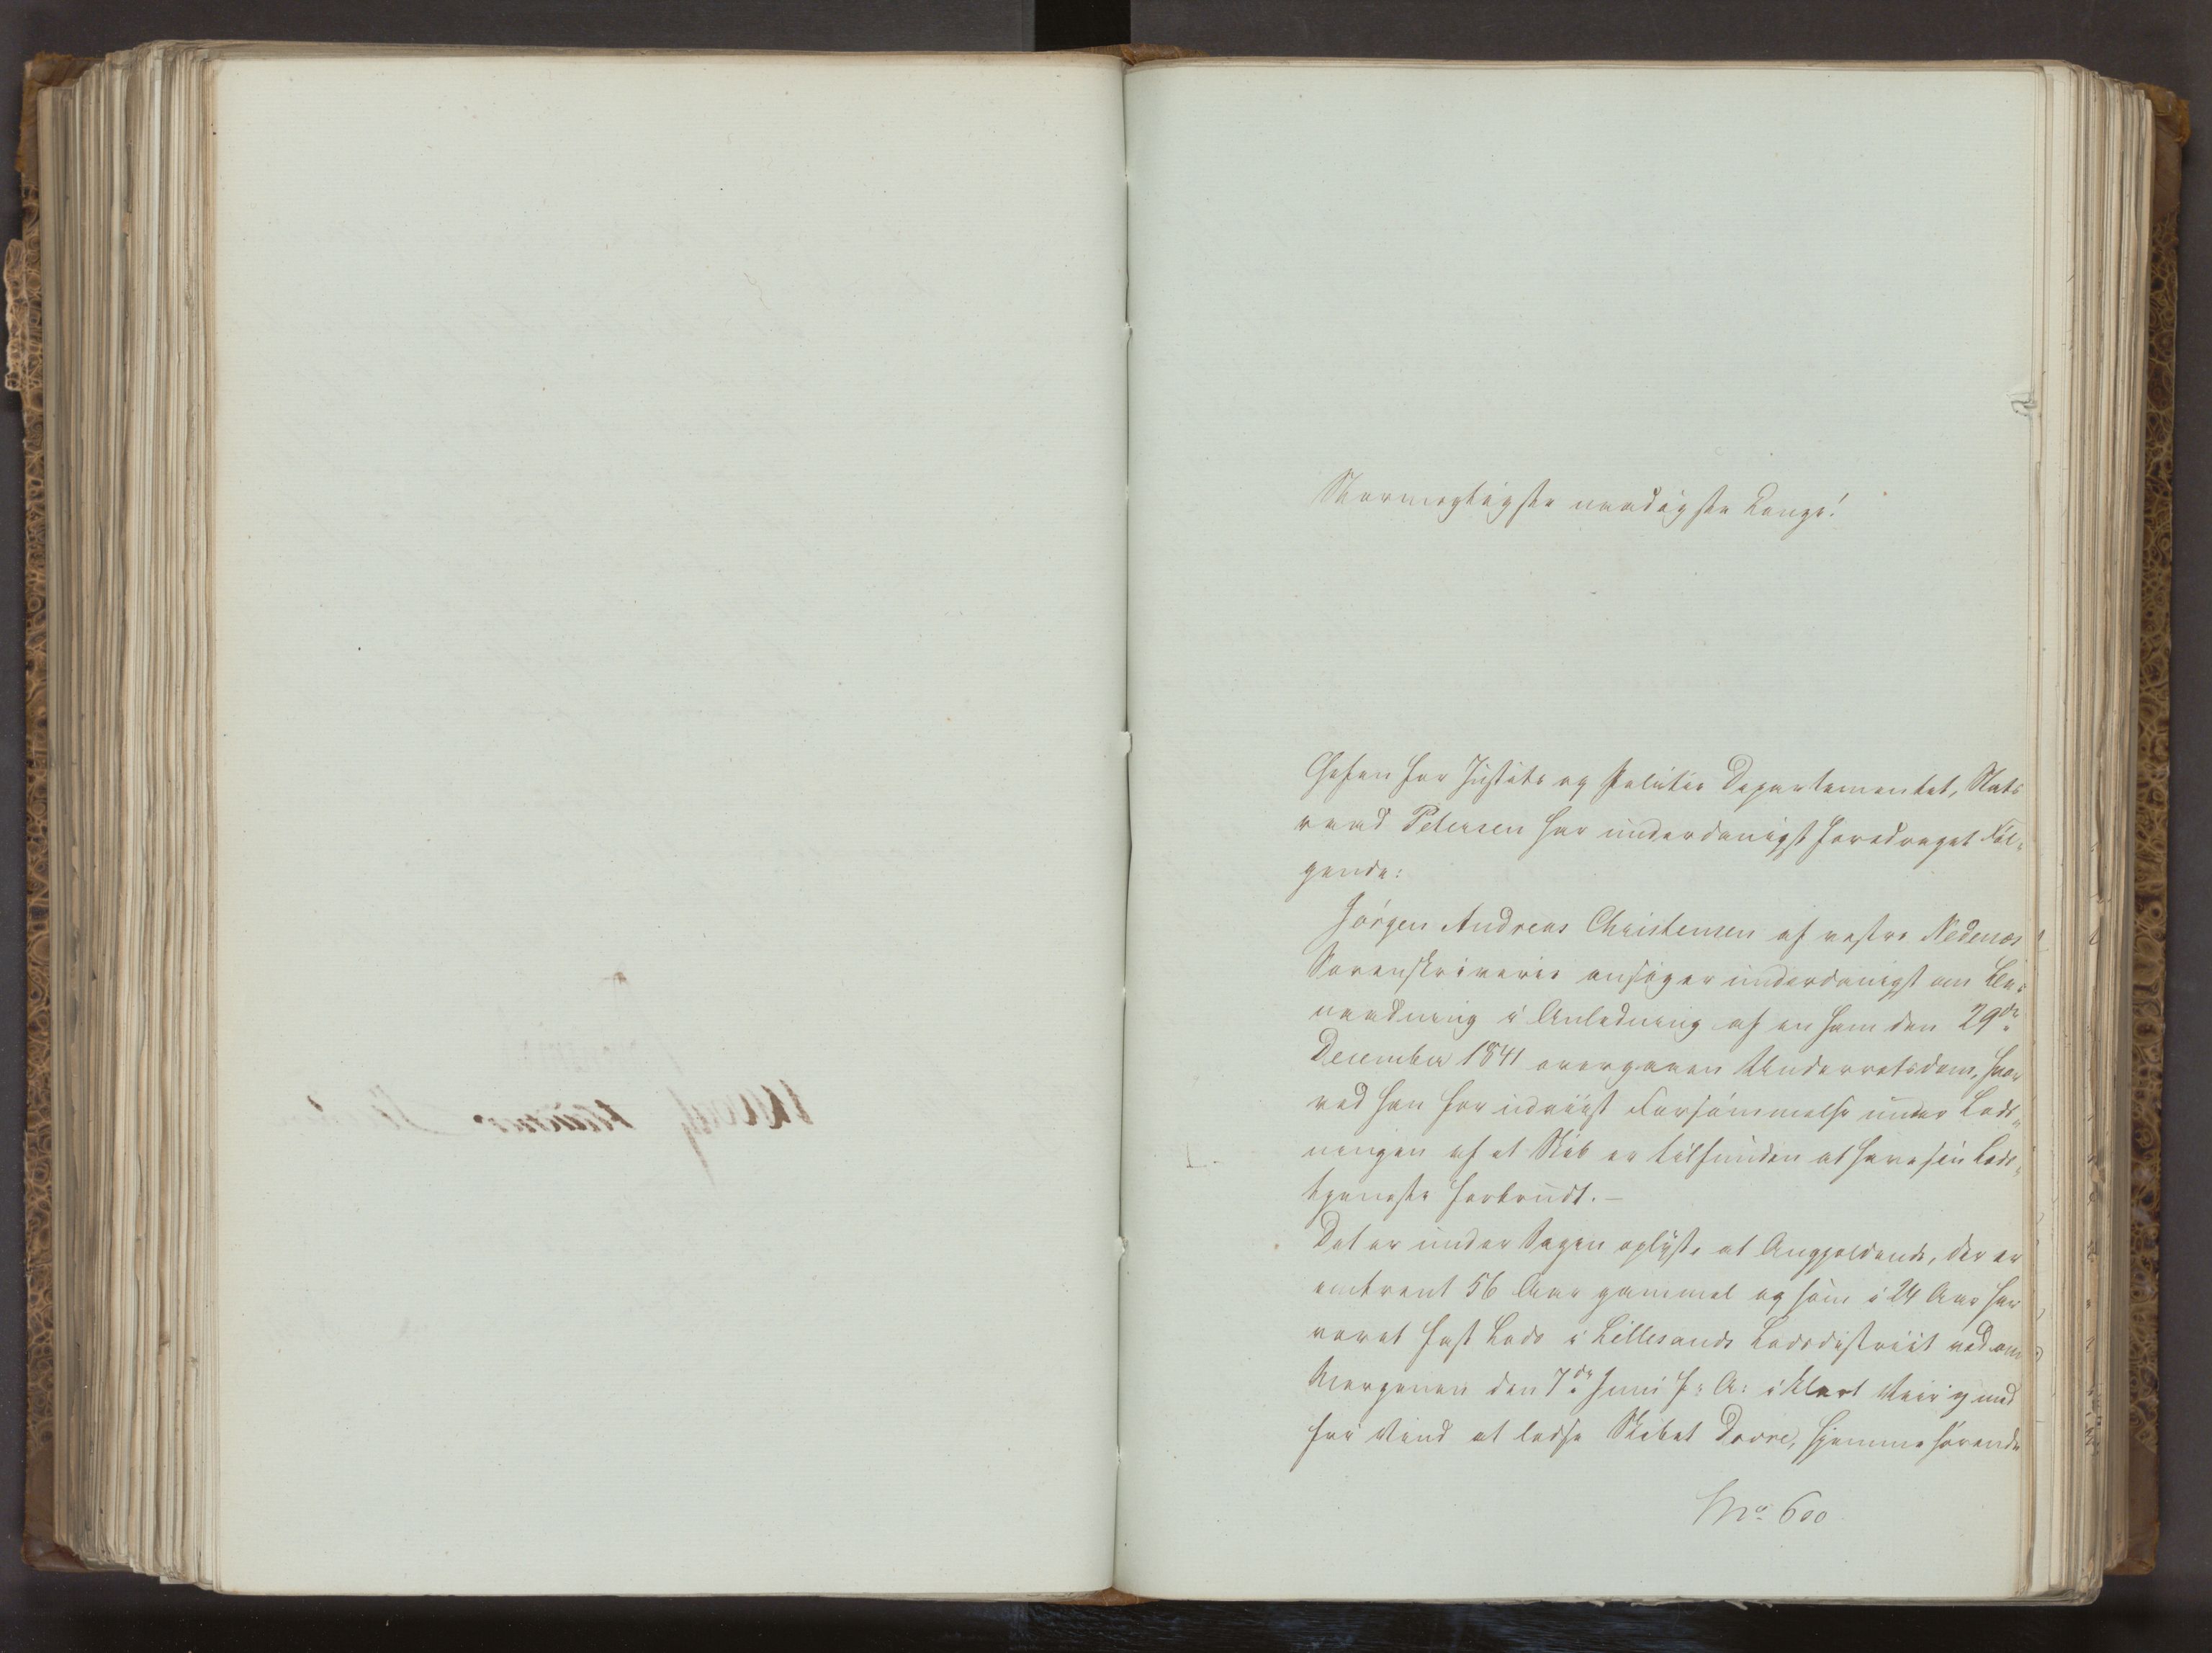 Stormægtigste naadigste Konge!
Chefen for Justits og Politie Departementet, Stats
raad Petersen har underdanigst foredraget Føl-
gende:
Jørgen Andreas Christensen af vestre Nedenæs
Sorenskriverie ansøger underdanigst om Be-
naadning i Anledning af en ham den 29de
December 1841 overgaaen Underretsdom, hvor
ved han for udviist Forsømmelse under Lods-
ningen af et Skib er tilfunden at have sin Lods-
tjeneste forbrudt.-
Det er under Sagen oplyst, at Angjeldende, der er
omtrent 56 Aar gammel og som i 24 Aar har
været fast Lods i Lillesands Lodsdistrict ved om
Morgenen den 7de Juni f: A: i klart Veir og med
föi Vind at lodse Skibet Dovre, hjemmehørende
No 600